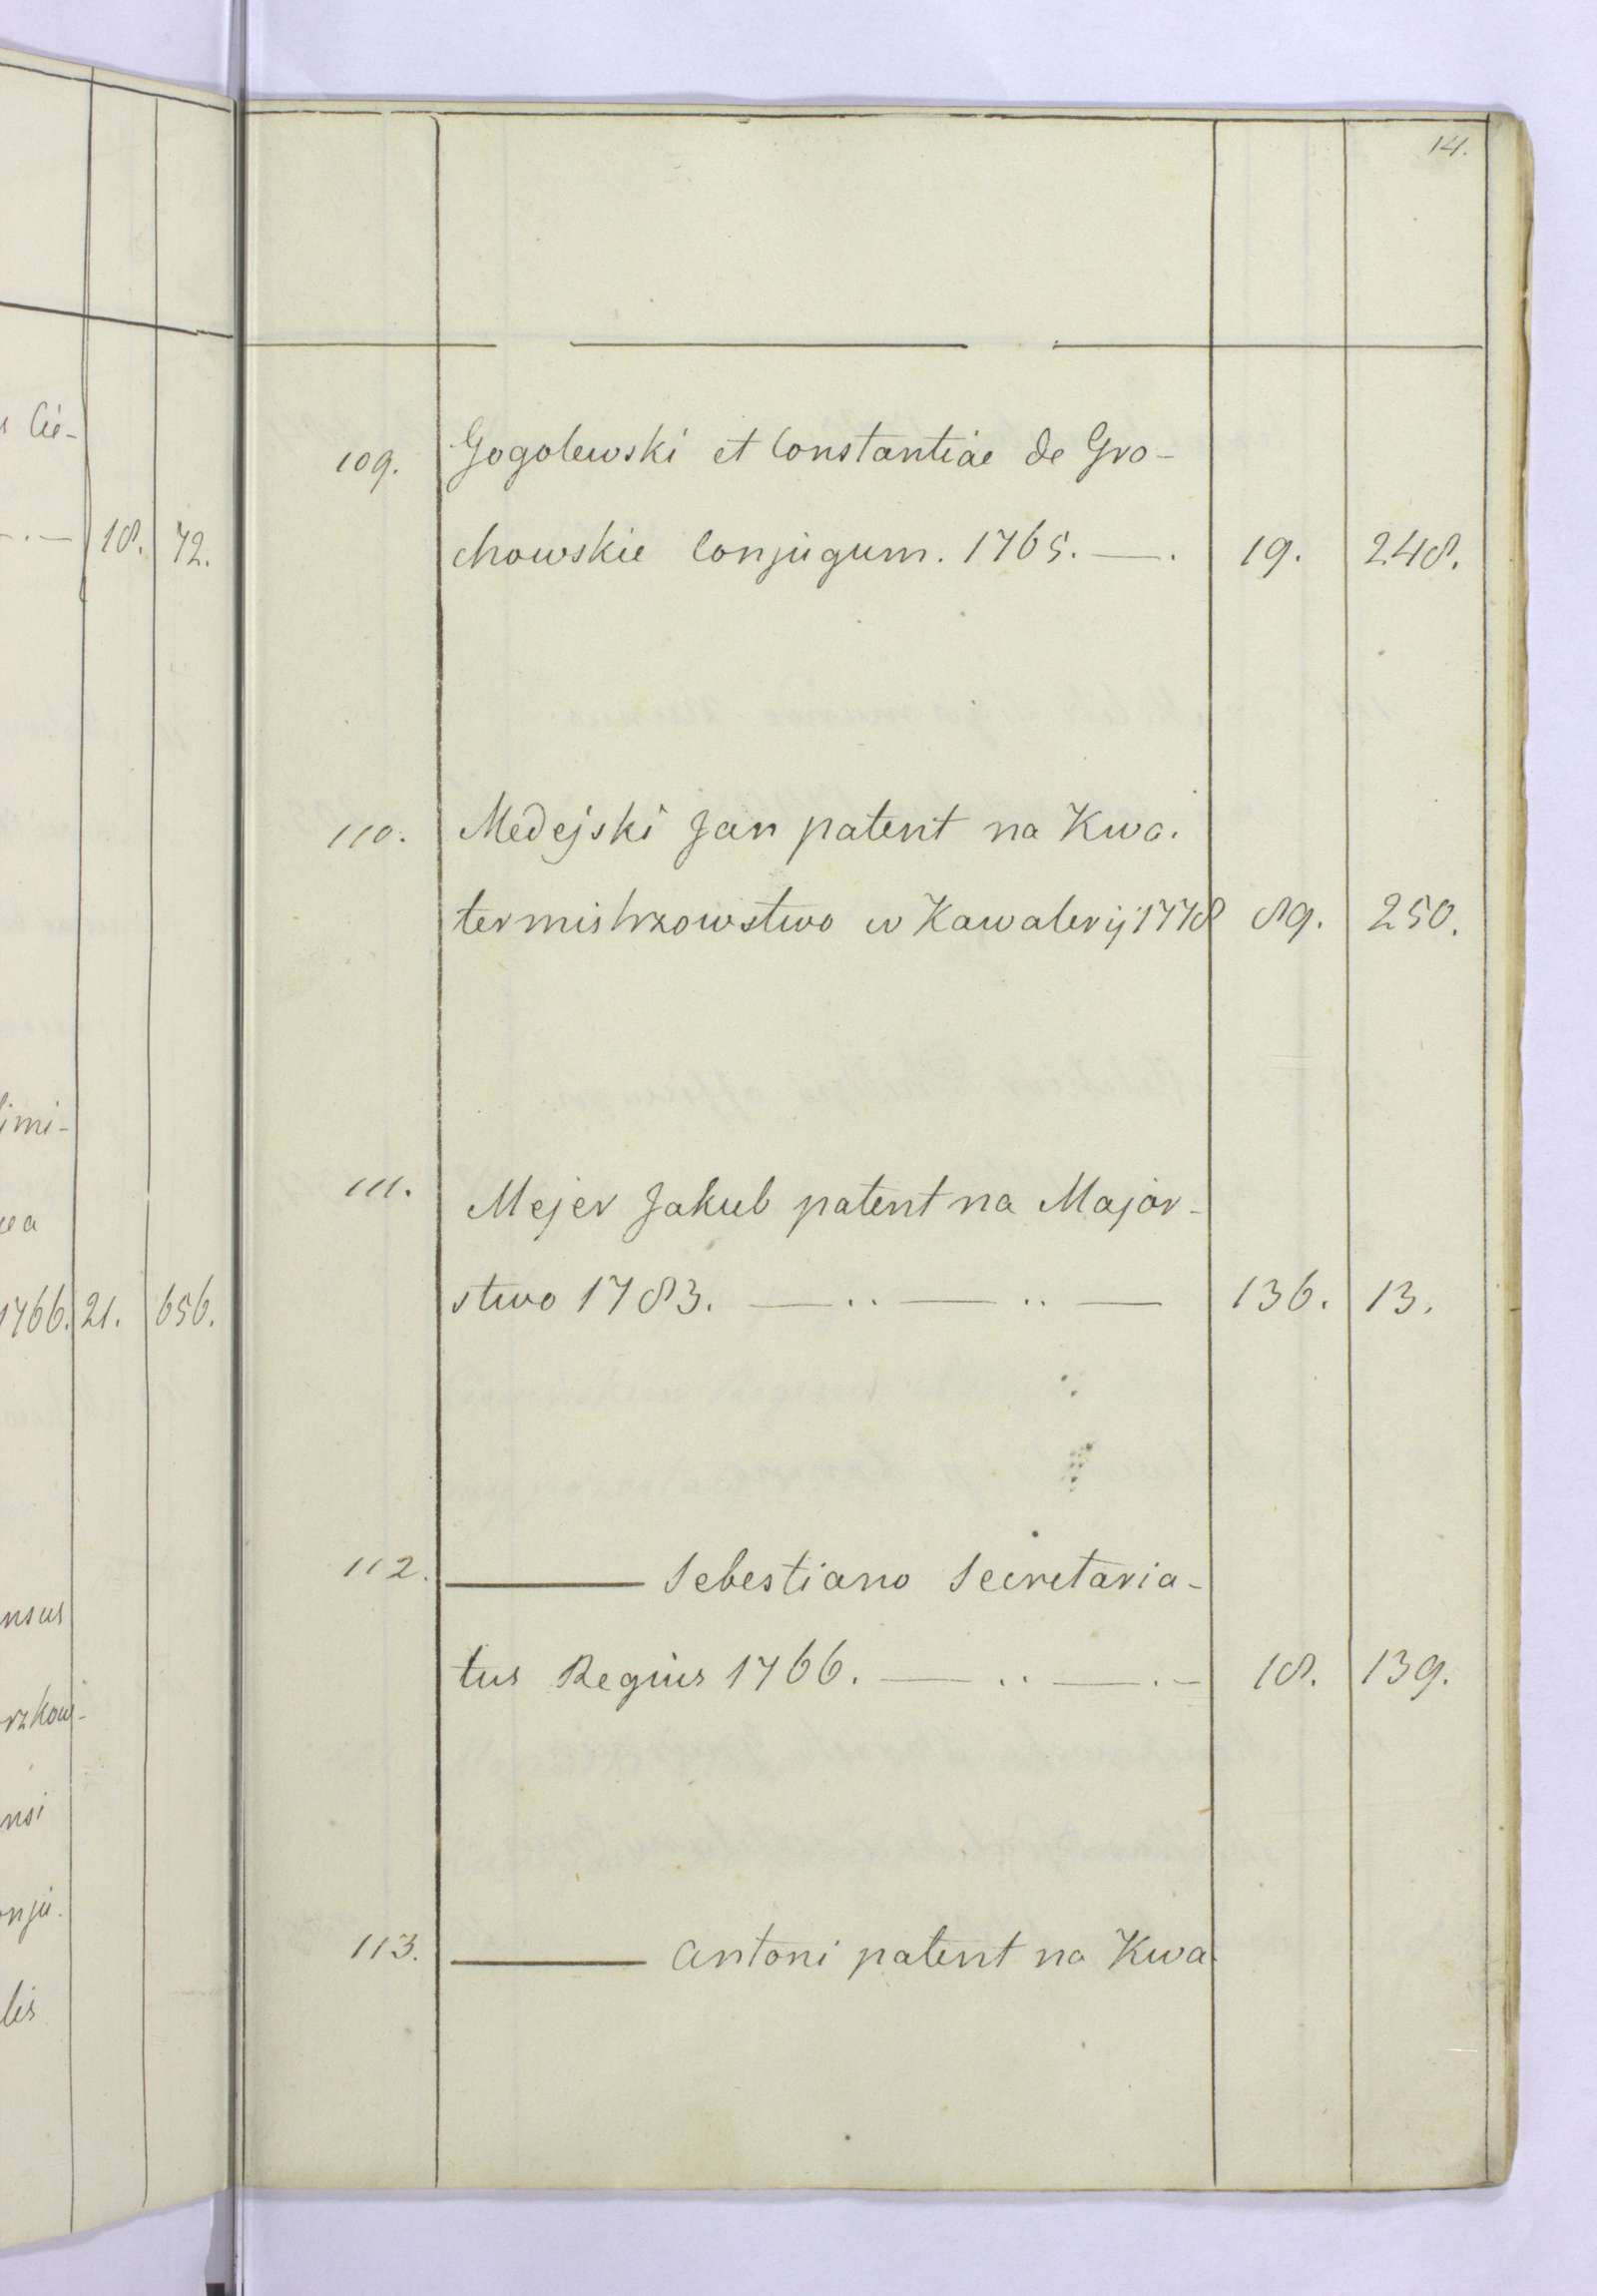 Cie-
18. 72.
imi-
1766. 21. 656.
nsus
rzkow-
nsi
onju.
lis
14.
109. Gogolewski et Constantiae de Gro-
chowskie Conjugum. 1765. — . 19. 248.
110. Medejski Jan patent na Kwa.
termistrzowstwo w Kawaleryi 1778 89. 250.
111. Mejer Jakub patent na Major-
stwo 1783. — .. — .. — 136. 13.
112. —— Sebestiano Secretaria-
tus Regius 1766. — .. — . - 18. 139.
113. —— Antoni patent na Kwa-